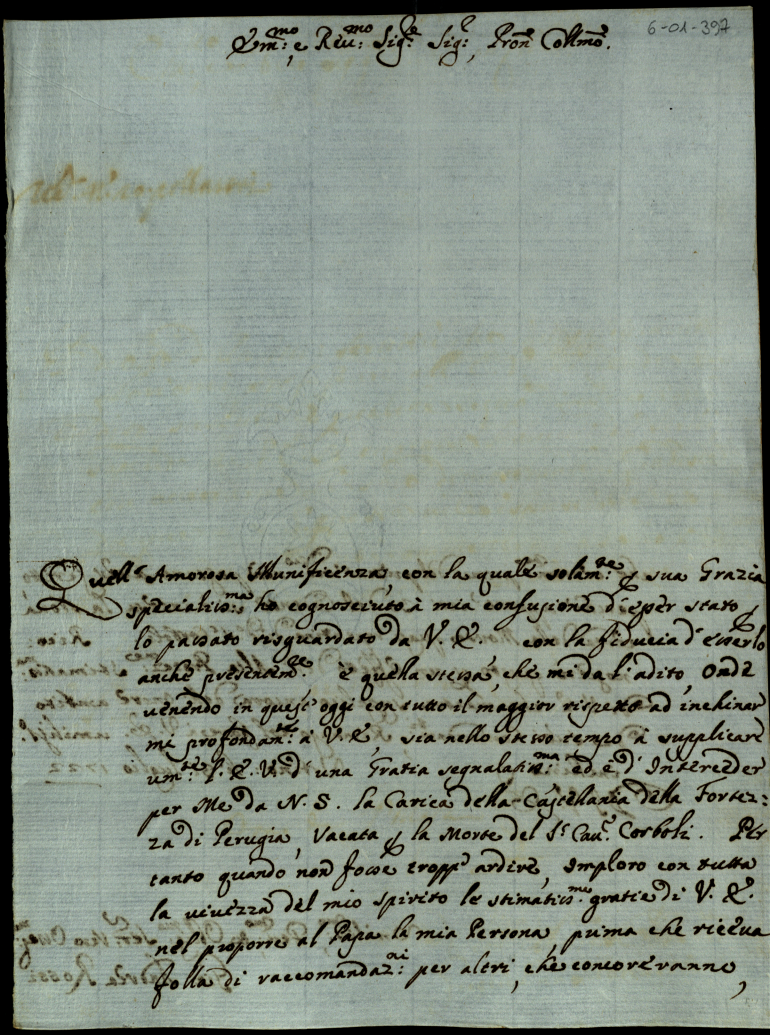 6-01-397
Em.mo: e Reu.mo: Sig.re Sig.r, Pron Collmo.
Quell' Amorosa Munificenza, con la quale solam.te: p sua Grazia
specialiss.ma: ho cognosciuto à mia confusione d'esser stato p
lo passato risguardato da V. E. con la fiducia d'esserlo
anche presentem.te è quella stessa, che mi da l'adito, onde
venendo in quest'oggi con tutto il maggior rispetto ad inchinar
mi profondam.te: à V. E, sia nello stesso tempo à supplicare
um.te: l'. E. V. d'una Gratia segnalatiss.ma: ed è d'Interceder
per Me da N. S. la Carica della Castellania della Fortez:
za di Perugia, Vacata p la Morte del S.r Cau.r Corboli. Per
tanto quando non fosse tropp' ardire, Imploro con tutta
la viuezza del mio spirito le stimatiss.me: gratie di V. E.
nel proporre al Papa la mia Persona, prima che riceva
folla di raccomandaz.ni: per altri, che concorreranno,